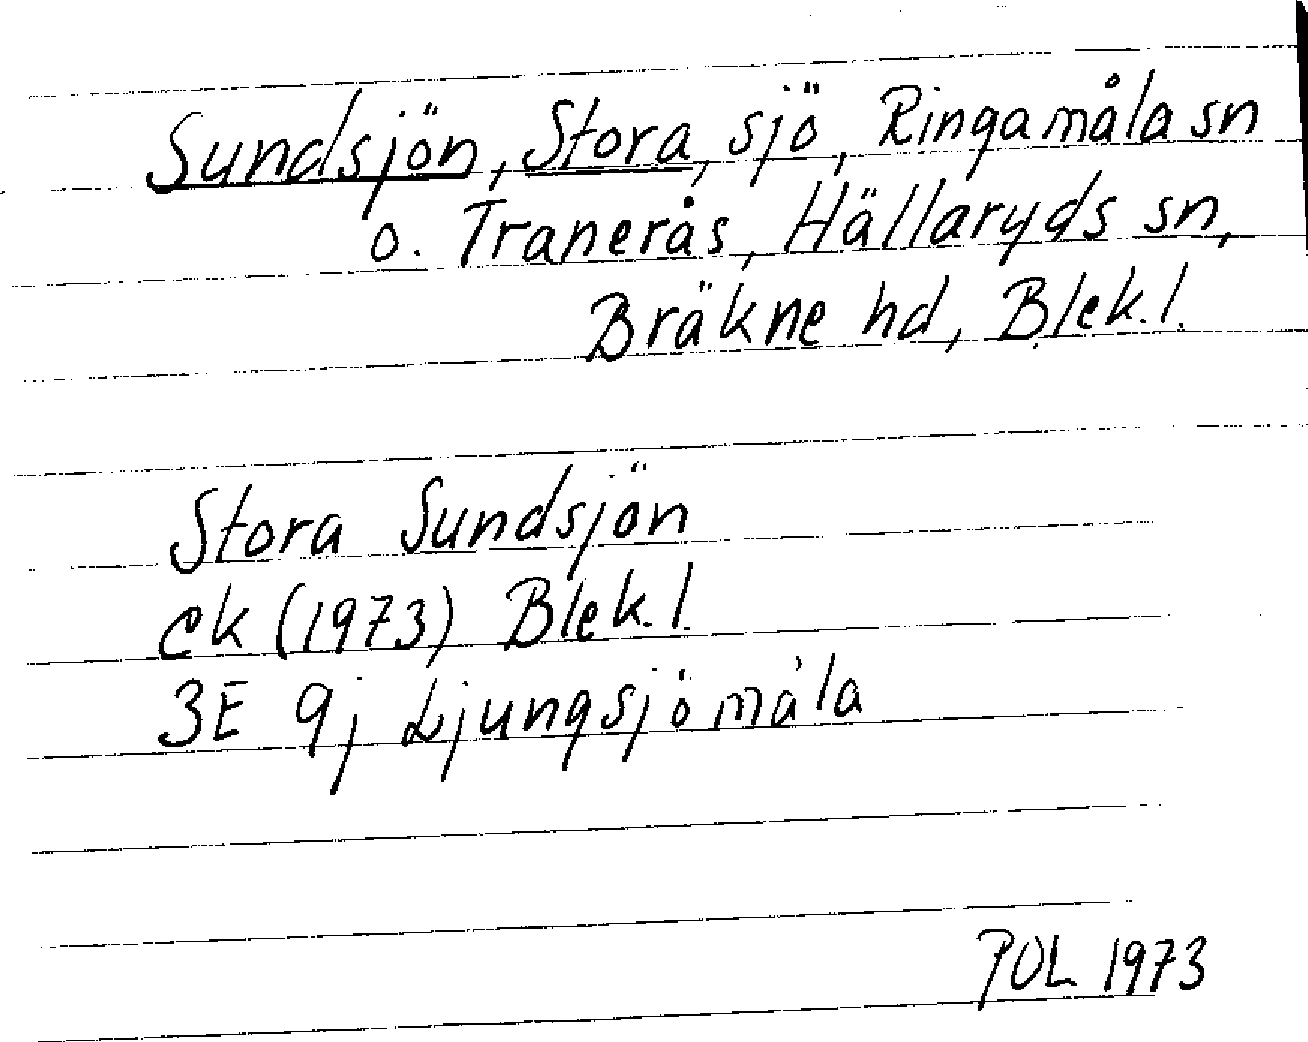 Sundsjön, Stora, sjö, Ringamåla sn
o. Tranerås, Hällaryds sn,
Bräkne hd, Blek.l.
Stora Sundsjön
ek (1973) Blek.l.
3E 9j Ljungsjömåla
POL 1973